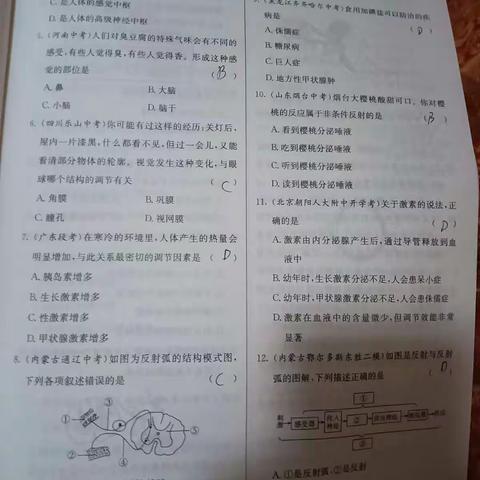 C.是人体的感觉中枢
D.是人体的高级神经中枢
5.(河南中考)人们对臭豆腐的特殊气味会有不同的
感受,有些人觉得臭,有些人觉得香。形成这种感
觉的部位是 (B)
A.鼻 B.大脑
C.小脑 D.脑干
6.(四川乐山中考)你可能有过这样的经历:关灯后,
屋内一片漆黑,什么都看不见,但过一会儿,又能
看清部分物体的轮廓。视觉发生这种变化,与眼
球哪个结构的调节有关 (C)
A.角膜 B.巩膜
C.瞳孔 D.视网膜
7.(广东段考)在寒冷的环境里,人体产生的热量会
明显增加,与此关系最密切的调节因素是 (D)
A.胰岛素增多
B.生长激素增多
C.性激素增多
D.甲状腺激素增多
8.(内蒙古通辽中考)如图为反射弧的结构模式图,
下列各项叙述错误的是 (C)
① ③
② ⑤ ④
9.(黑龙江齐齐哈尔中考)食用加碘盐可以防治的疾
病是 (D)
A.侏儒症
B.糖尿病
C.巨人症
D.地方性甲状腺肿
10.(山东烟台中考)烟台大樱桃酸甜可口。你对樱
桃的反应属于非条件反射的是 (B)
A.看到樱桃分泌唾液
B.吃到樱桃分泌唾液
C.听到樱桃分泌唾液
D.读到樱桃分泌唾液
11.(北京朝阳人大附中开学考)关于激素的说法,正
确的是 (D)
A.激素由内分泌腺产生后,通过导管释放到血
液中
B.幼年时,生长激素分泌不足,人会患呆小症
C.幼年时,甲状腺激素分泌不足,人会患侏儒症
D.激素在血液中的含量微少,但调节效能非常
显著
12.(内蒙古鄂尔多斯东胜二模)如图是反射与反射
弧的图解,下列描述正确的是 (D)
①
刺激 感受器 传入神经 ② 传出神经 效应器
③
A.①是反射弧,②是反射